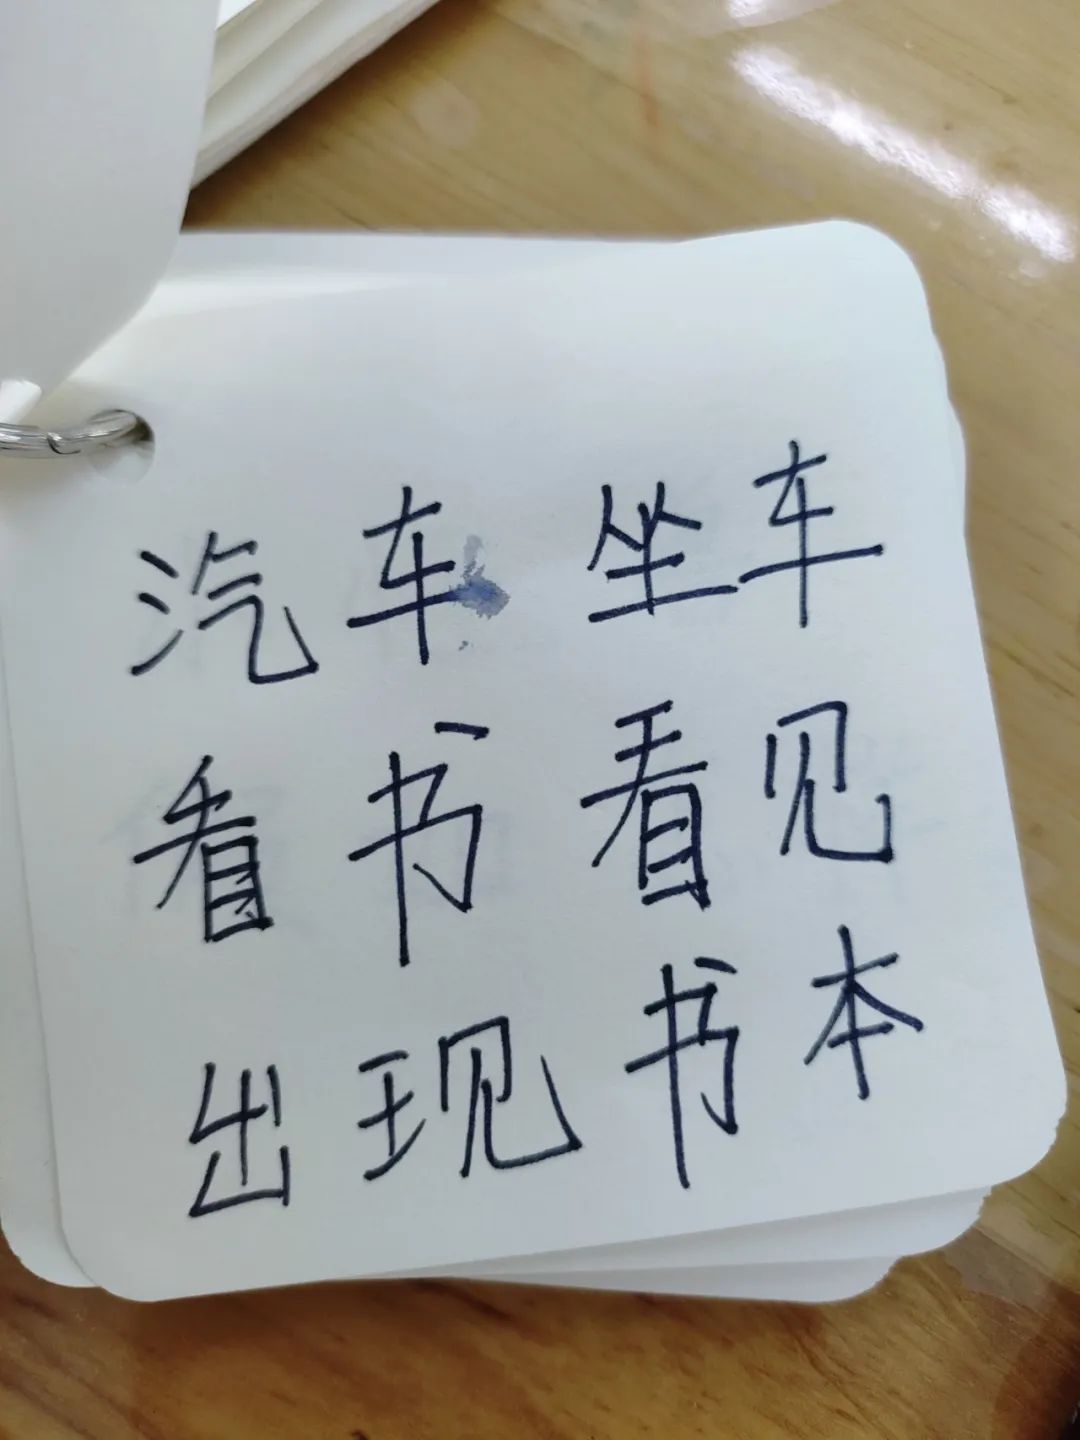 汽车 坐车
看书 看见
出现 书本